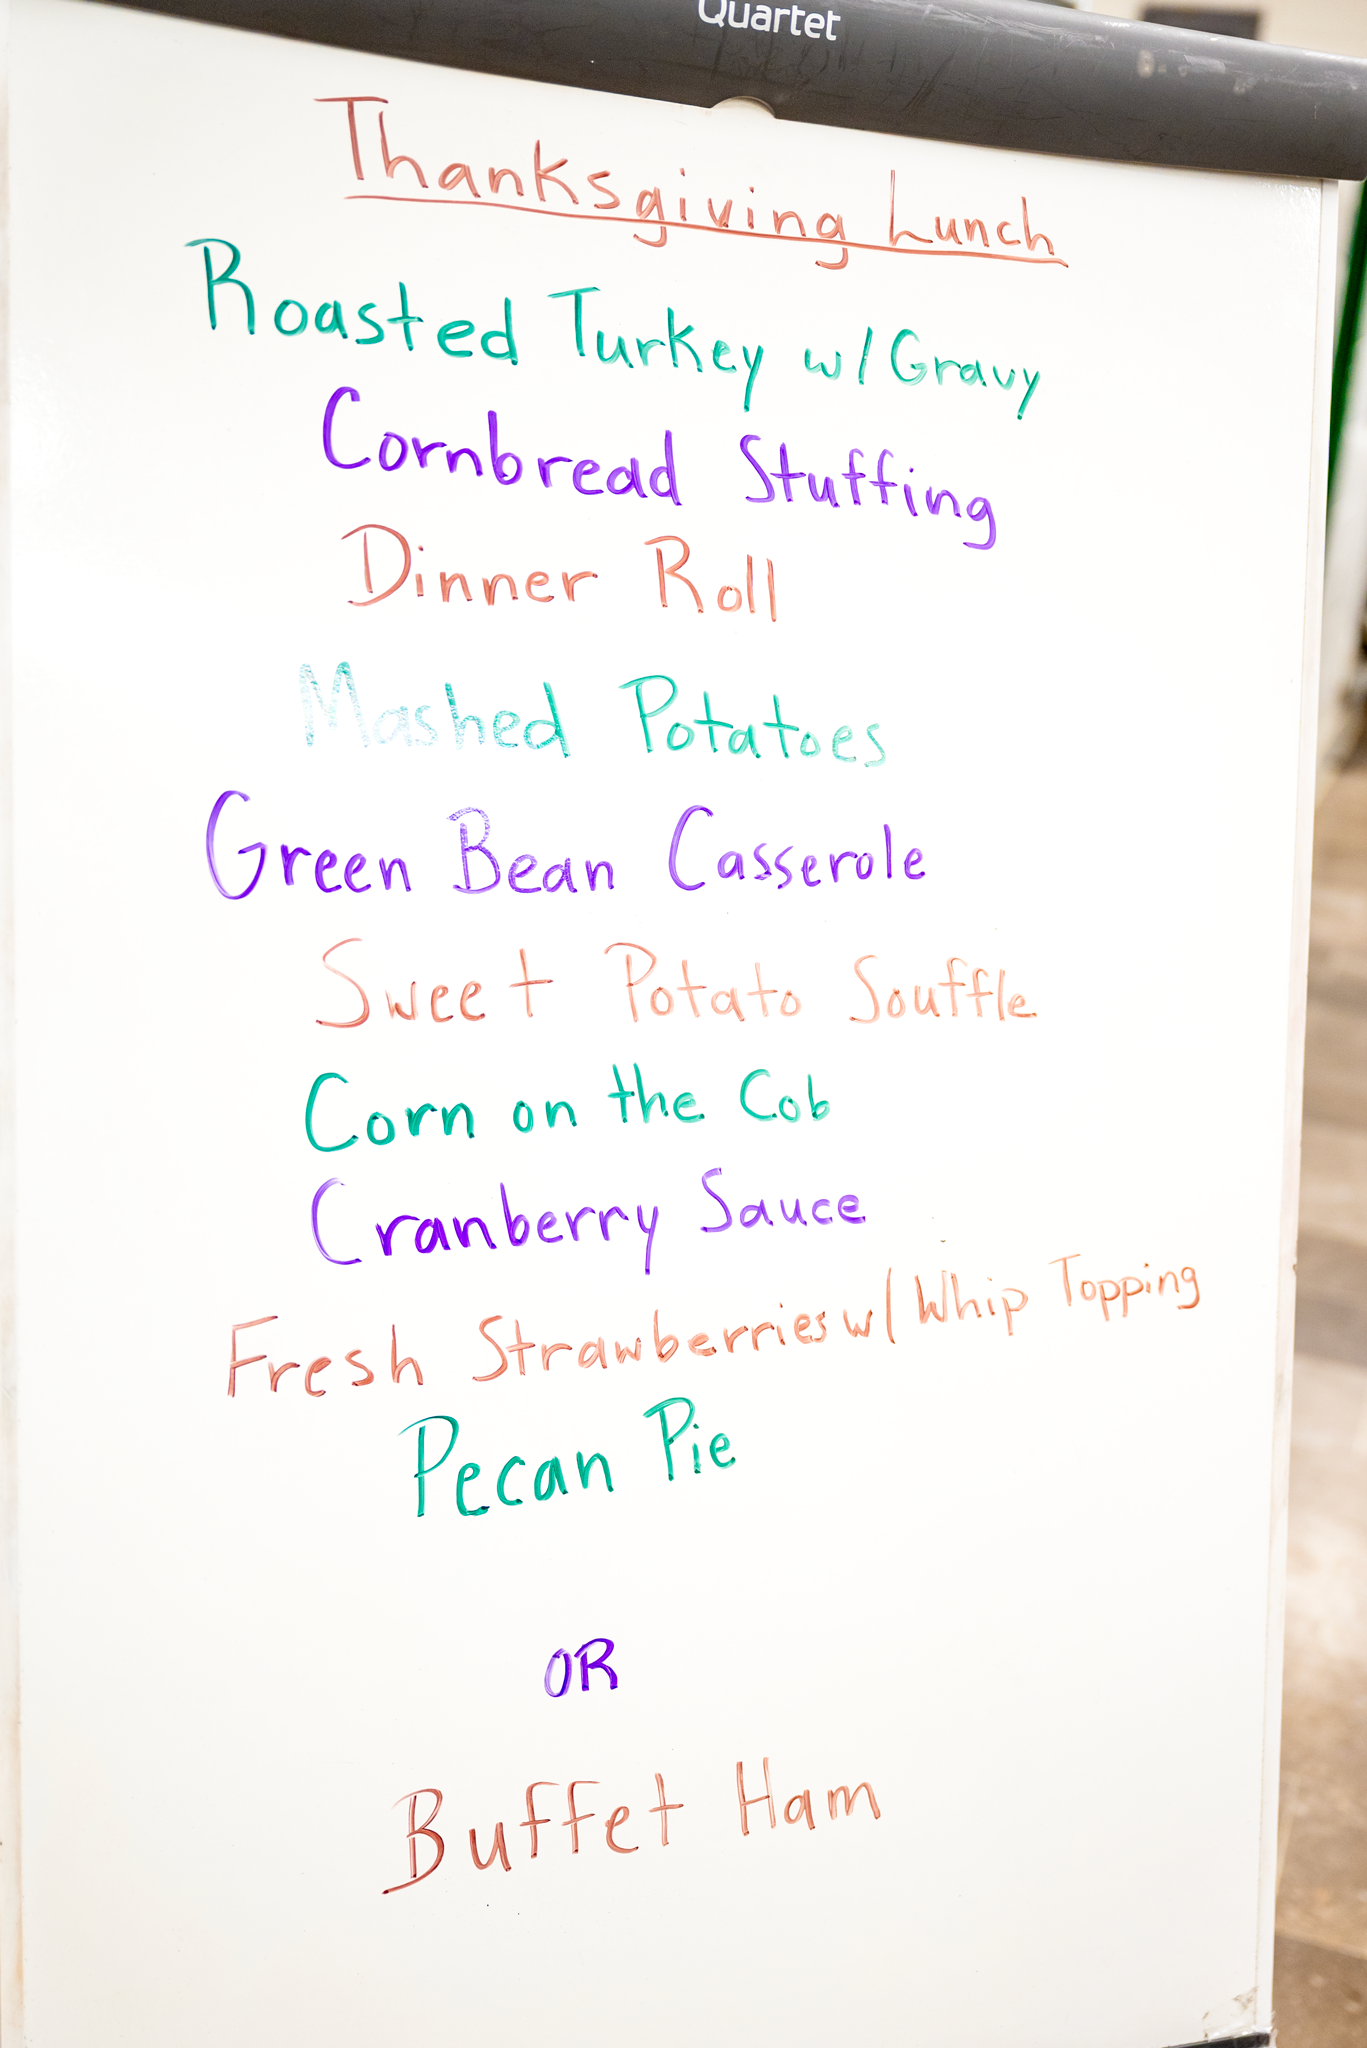 Quartet
Thanksgiving Lunch
Roasted Turkey w/ Gravy
Cornbread Stuffing
Dinner Roll
Mashed Potatoes
Green Bean Casserole
Sweet Potato Souffle
Corn on the Cob
Cranberry Sauce
Fresh Strawberries w/ Whip Topping
Pecan Pie
OR
Buffet Ham